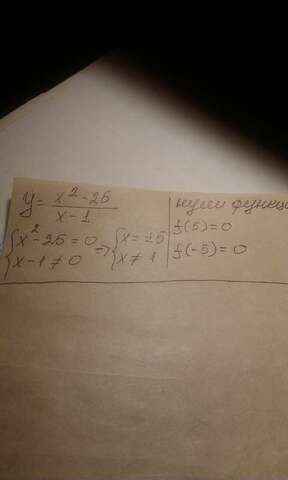 y = (x² - 25)/(x - 1)
{x² - 25 = 0
x - 1 ≠ 0 => {x = ±5
x ≠ 1
нули функц
f(5) = 0
f(-5) = 0